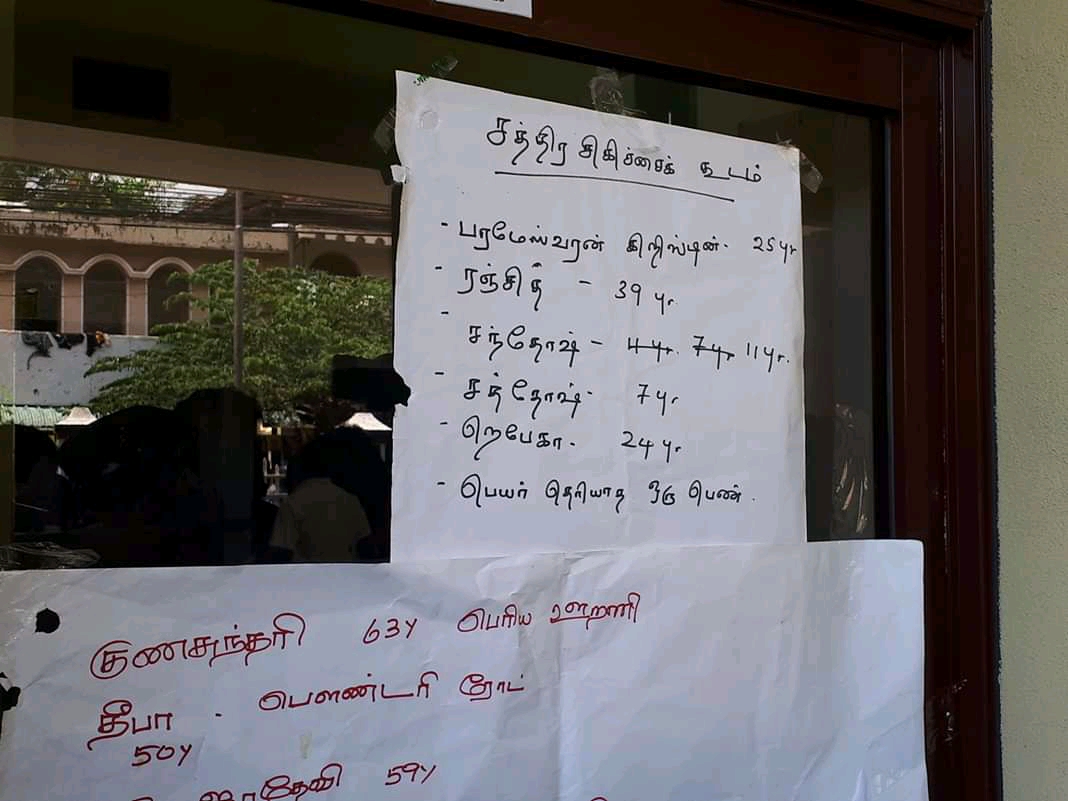 சத்திர சிகிச்சைக் கூடம்
- பரமேஸ்வரன் கிறிஸ்டின்- 25 yr
- ரஞ்சித் - 39 yr.
- சந்தோஷ் - 11 yr.
- சந்தோஷ்- 7 yr
- றெபேகா- 24 yr.
- பெயர் தெரியாத ஒரு பெண்.
குணசுந்தரி 63y பெரிய ஊறணி
தீபா - பௌண்டரி ரோட்
50y
59y